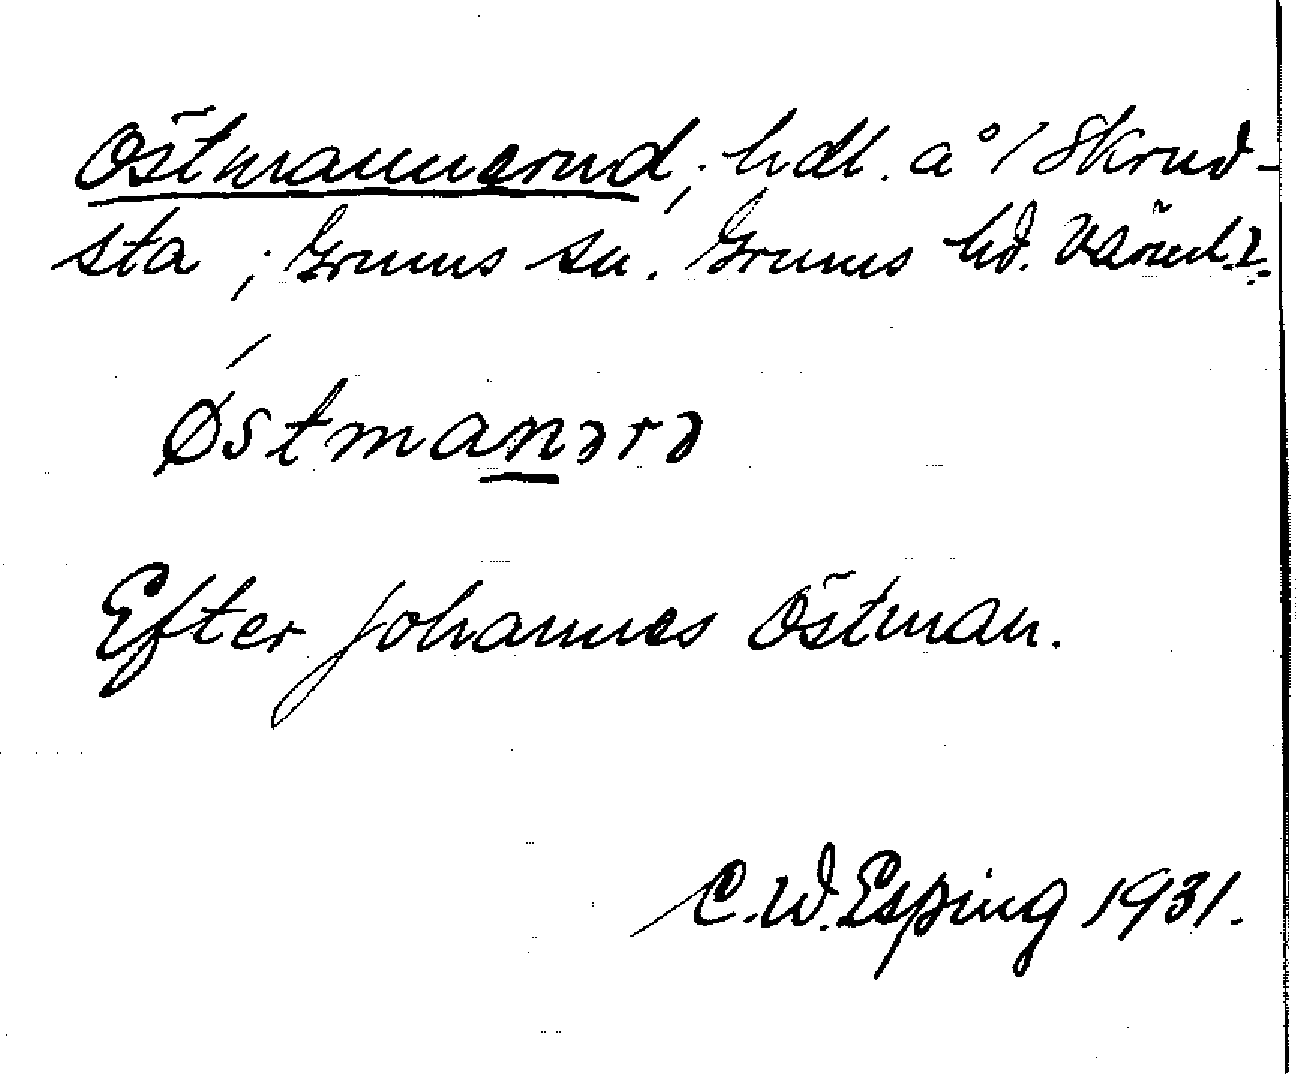 Östmannerud; hdl. å 1 Skrud-
sta; Grums sn. Grums hd. Värml.
Østmanərə
Efter Johannes Östman.
C.W. Esping 1931.